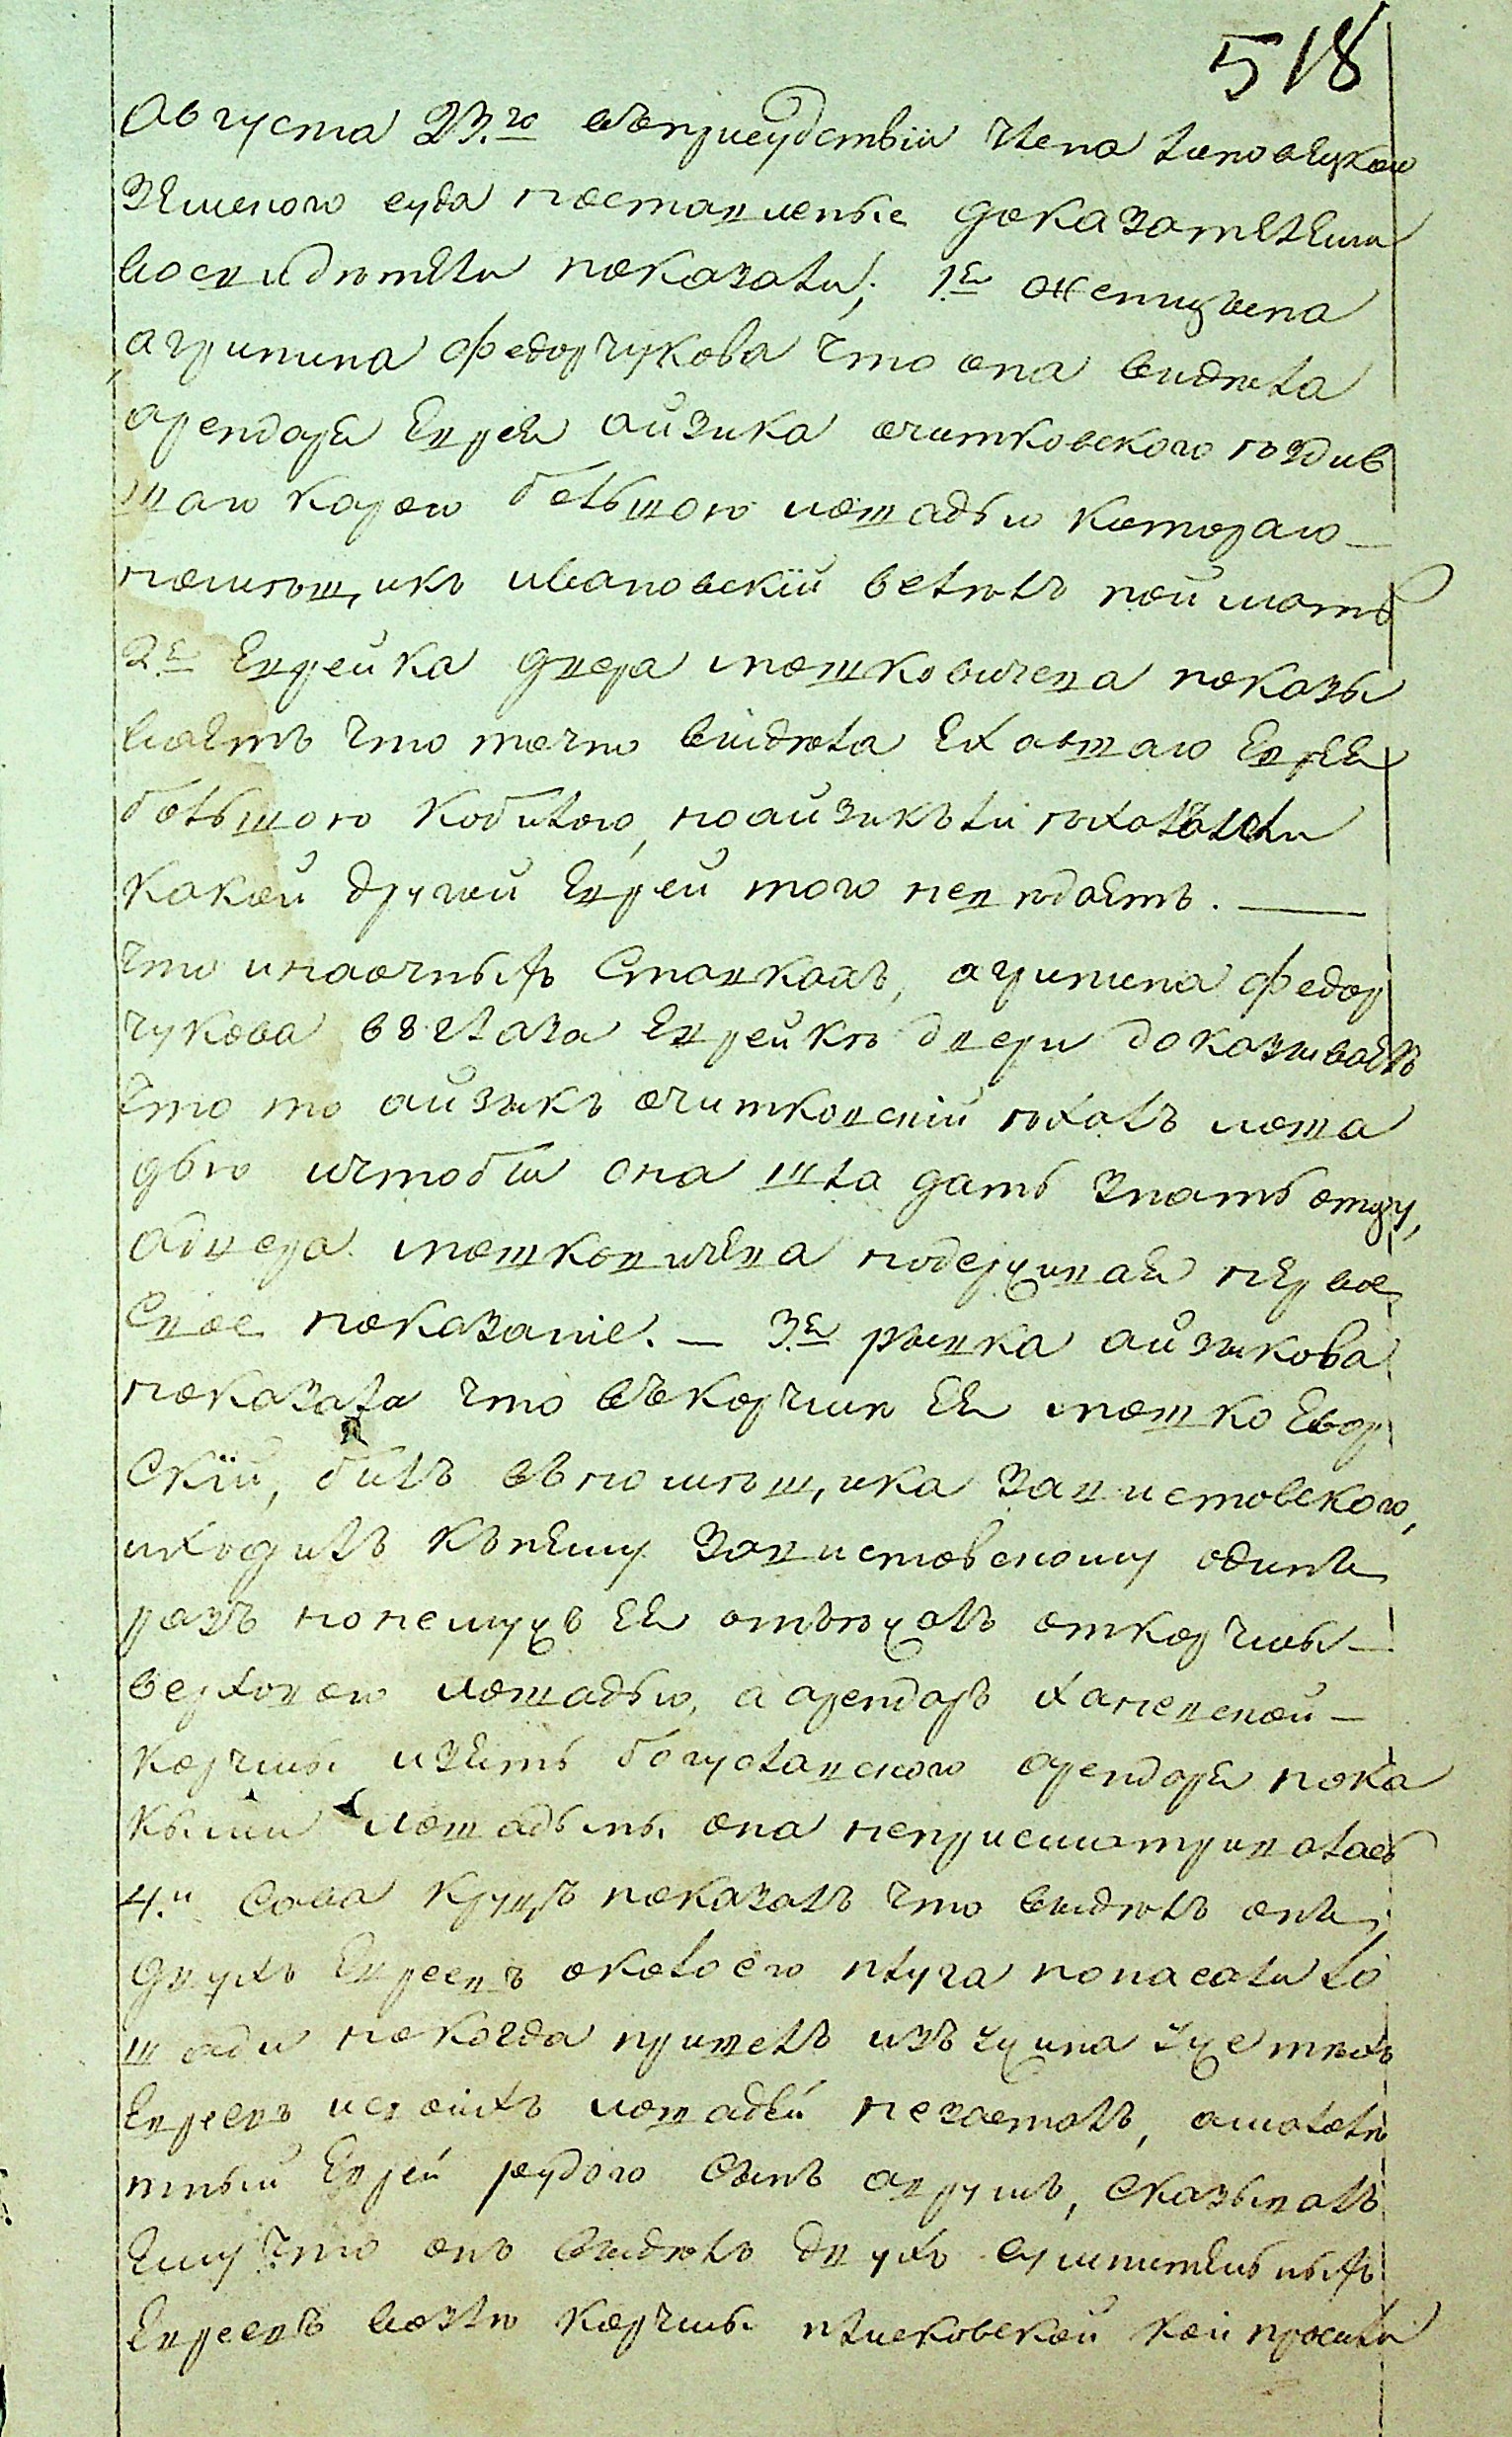 518
Августа 23.го въприсудствіи члена Липовецкаго
Земского суда поставленные доказателями
восвидѣтели показали; 1.я женщина
агрипина Федорчукова что она видѣла
арендаря Еврея айзика очитковского ѣздив
шаго карею большою лошадью которую —
помѣщикъ ивановскій велѣлъ поймать
2.я Еврейка двера мошковичева показы
ваетъ что точно видѣла Ехавшаго Еврея
большою кобилою, ноайзикъли ѣхалъ или
какой другой Еврей того неведаетъ. —
что инаочныхъ Ставкахъ, агрипина Федор
чукова въглаза Еврейкѣ двери доказываетъ
что то айзикъ очитковскій ѣхалъ лоша
дью ичтобы она шла дать знать отцу,
адвера мошковичева подержуваясь перво
свое показаніе. — 3.я рывка айзикова
показала что въкорчми Ея мошко Евор
скій, билъ въпомѣщика Завистовского,
иходилъ кънему Завистовскому одинъ
разъ понемужъ Ея отъѣхалъ откорчмы —
верховою лошадью, а арендарь ханевской —
корчмы изять богуславского арендаря нока
кыми лошадьми она неприсматривалась
4.й Сава Круцъ показалъ что видѣлъ онъ
двухъ Евреевъ около его плуга попасали ло
шади некогда пришелъ изъ
Евреевъ исвоихъ лошадей незасталъ, амололѣ
тный Еврей рудого Сынъ аврумъ, Сказывалъ
Ему что онъ видѣлъ двухъ сумнительныхъ
Евреевъ возлѣ корчмы плисковской кои просили